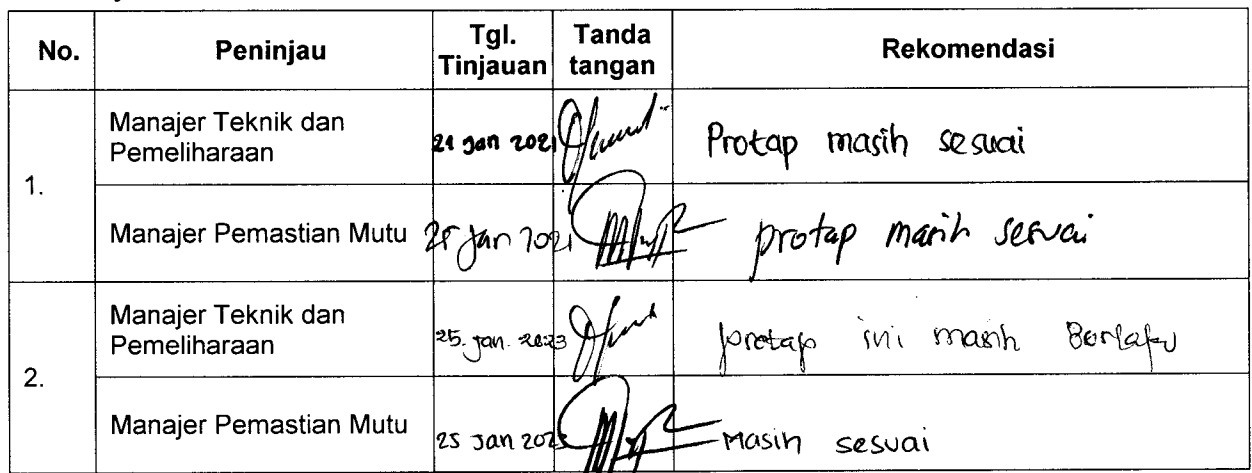 No. Peninjau Tgl. Tinjauan Tanda tangan Rekomendasi
1. Manajer Teknik dan Pemeliharaan 21 Jan 2021 Protap masih sesuai
Manajer Pemastian Mutu Jan 2021 protap masih sesuai
2. Manajer Teknik dan Pemeliharaan 25. Jan. 2023 protap ini masih Berlaku
Manajer Pemastian Mutu 25 Jan 2023 Masih sesuai